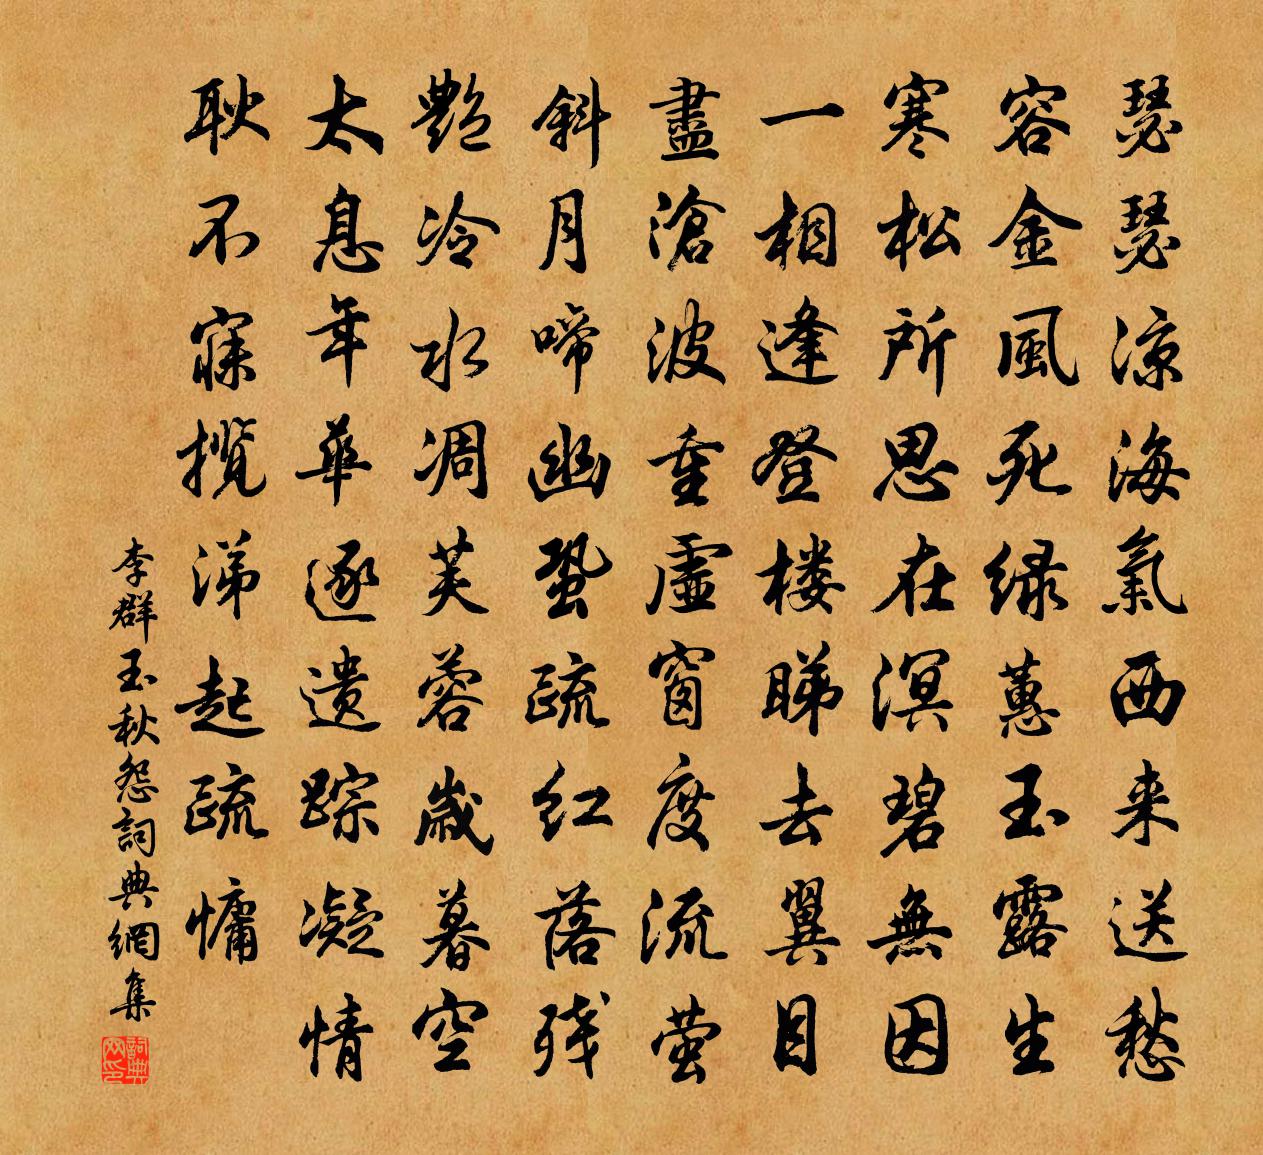 瑟瑟涼海氣西来送愁
容金風死绿蕙玉露生
寒松所思在溟碧無因
一相逢登楼睇去翼目
盡滄波重虛窗度流萤
斜月啼幽蛩疏红落残
艷冷水凋芙蓉歲暮空
太息年華逐遗踪凝情
耿不寐揽涕起疏慵
李群玉秋怨詞典網集
詞典网印